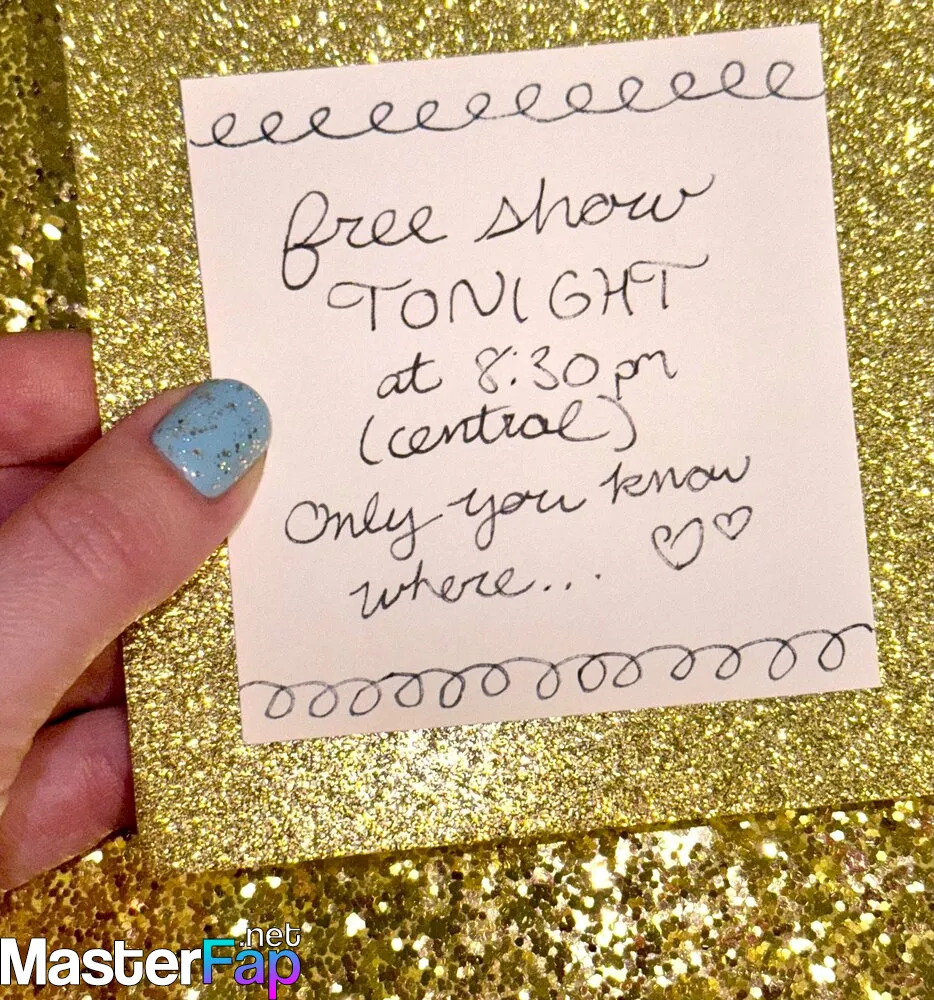 free show
TONIGHT
at 8:30pm
(central)
Only you know
where...
MasterFap.net